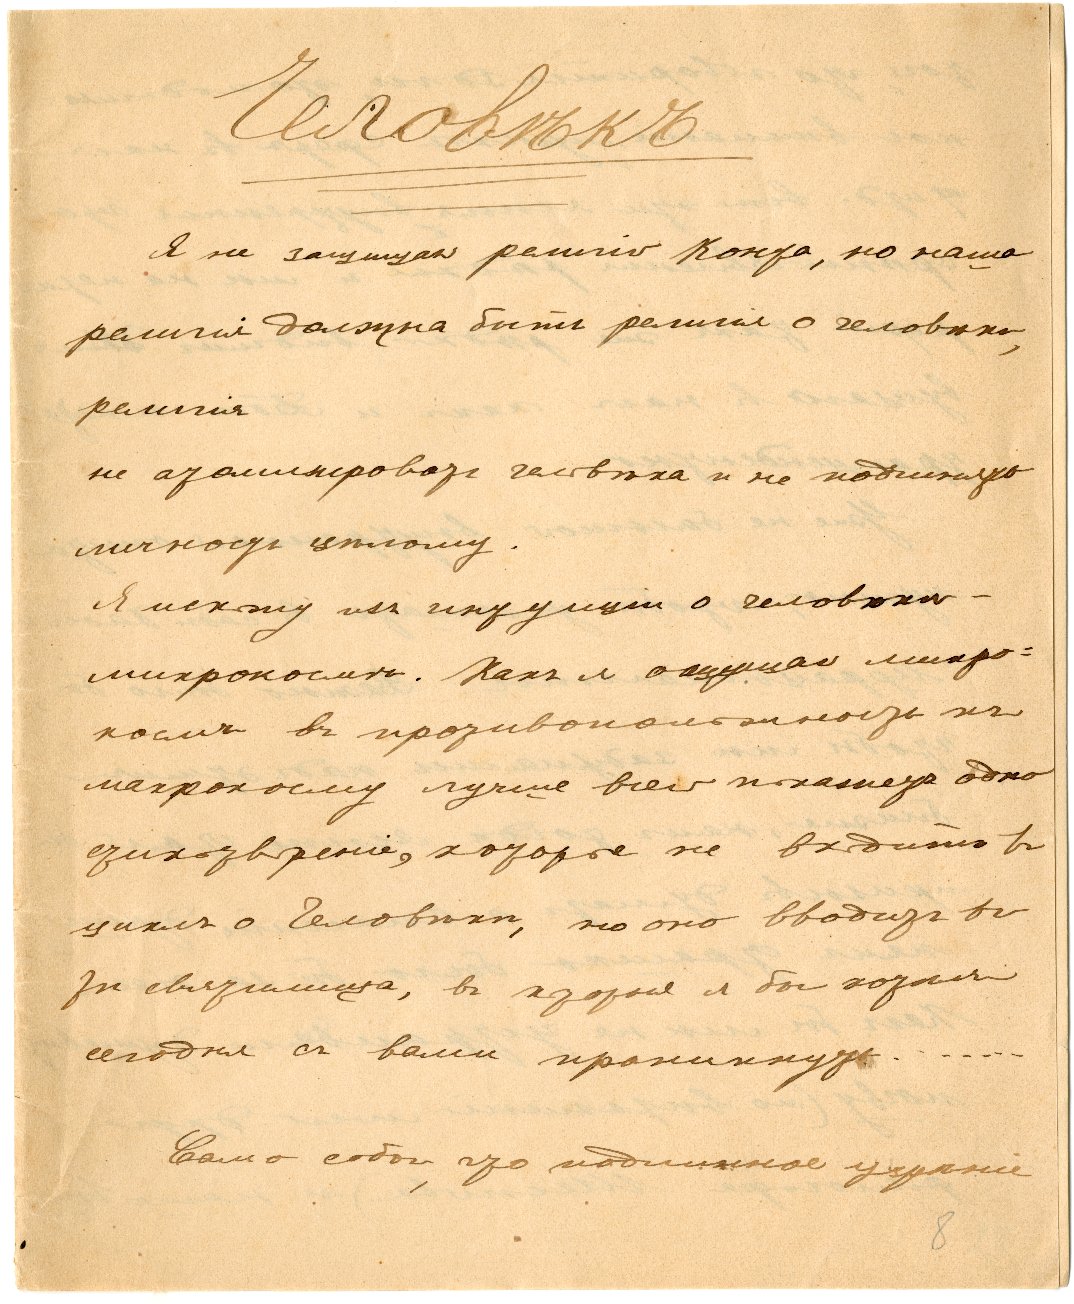 Человѣкъ
Я не защищаю религію Конта, но наша
религія должна быть религія о человѣкѣ,
религія
не изолировать человѣка и не подчинять
личность цѣлому.
Я исхожу изъ интуиціи о человѣкѣ-
микрокосмѣ. Какъ я ощущаю микро=
космъ въ противоположность къ
макрокосму лучше всего покажетъ одно
стихотвореніе, которое не входитъ въ
циклъ о Человѣкѣ, но оно вводитъ въ
тѣ святилища, въ которыя я бы хотѣлъ
сегодня съ вами проникнуть.......
Само собой, что подлинное ученіе
8